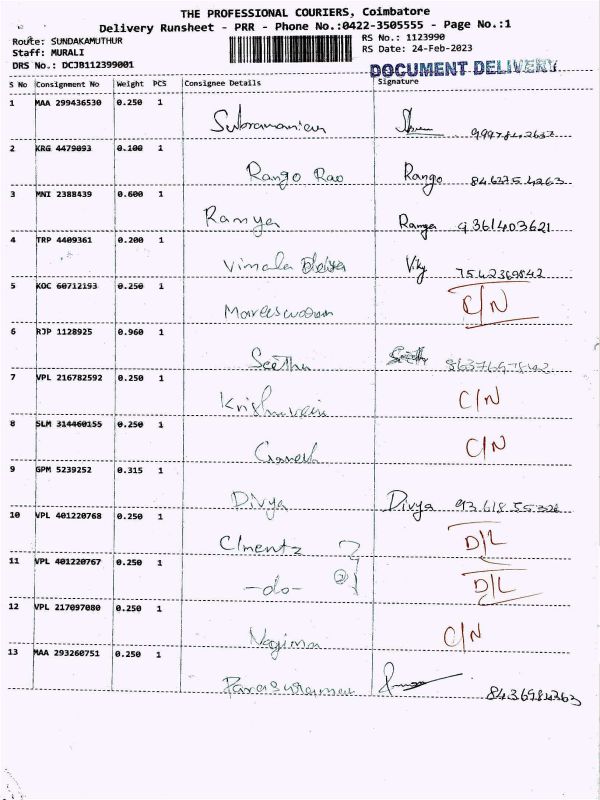 THE PROFESSIONAL COURIERS, Coimbatore
Delivery Runsheet - PRR - Phone No.:0422-3505555 - Page No.:1
Route: SUNDAKAMUTHUR
Staff: MURALI
DRS No.: DCJB112399001
RS No.: 1123990
RS Date: 24-Feb-2023
DOCUMENT DELIVERY
S No Consignment No Weight PCS Consignee Details Signature
1 MAA 299436530 0.250 1 Subramanian
2 KRG 4479093 0.100 1 Rango Rao Rango
3 MNI 2388439 0.600 1 Ramya Ramya 9361403621
4 TRP 4409361 0.200 1 Vimala Viky 7542369842
5 KOC 60712193 0.250 1 C/N
6 RJP 1128925 0.960 1 Seetha
7 VPL 216782592 0.250 1 C/N
8 SLM 314460155 0.250 1 Ganesh C/N
9 GPM 5239252 0.315 1 Divya Divya
10 VPL 401220768 0.250 1 Clmentz D/L
11 VPL 401220767 0.250 1 -do- D/L
12 VPL 217097080 0.250 1 Nagima C/N
13 MAA 293260751 0.250 1 Parasuraman